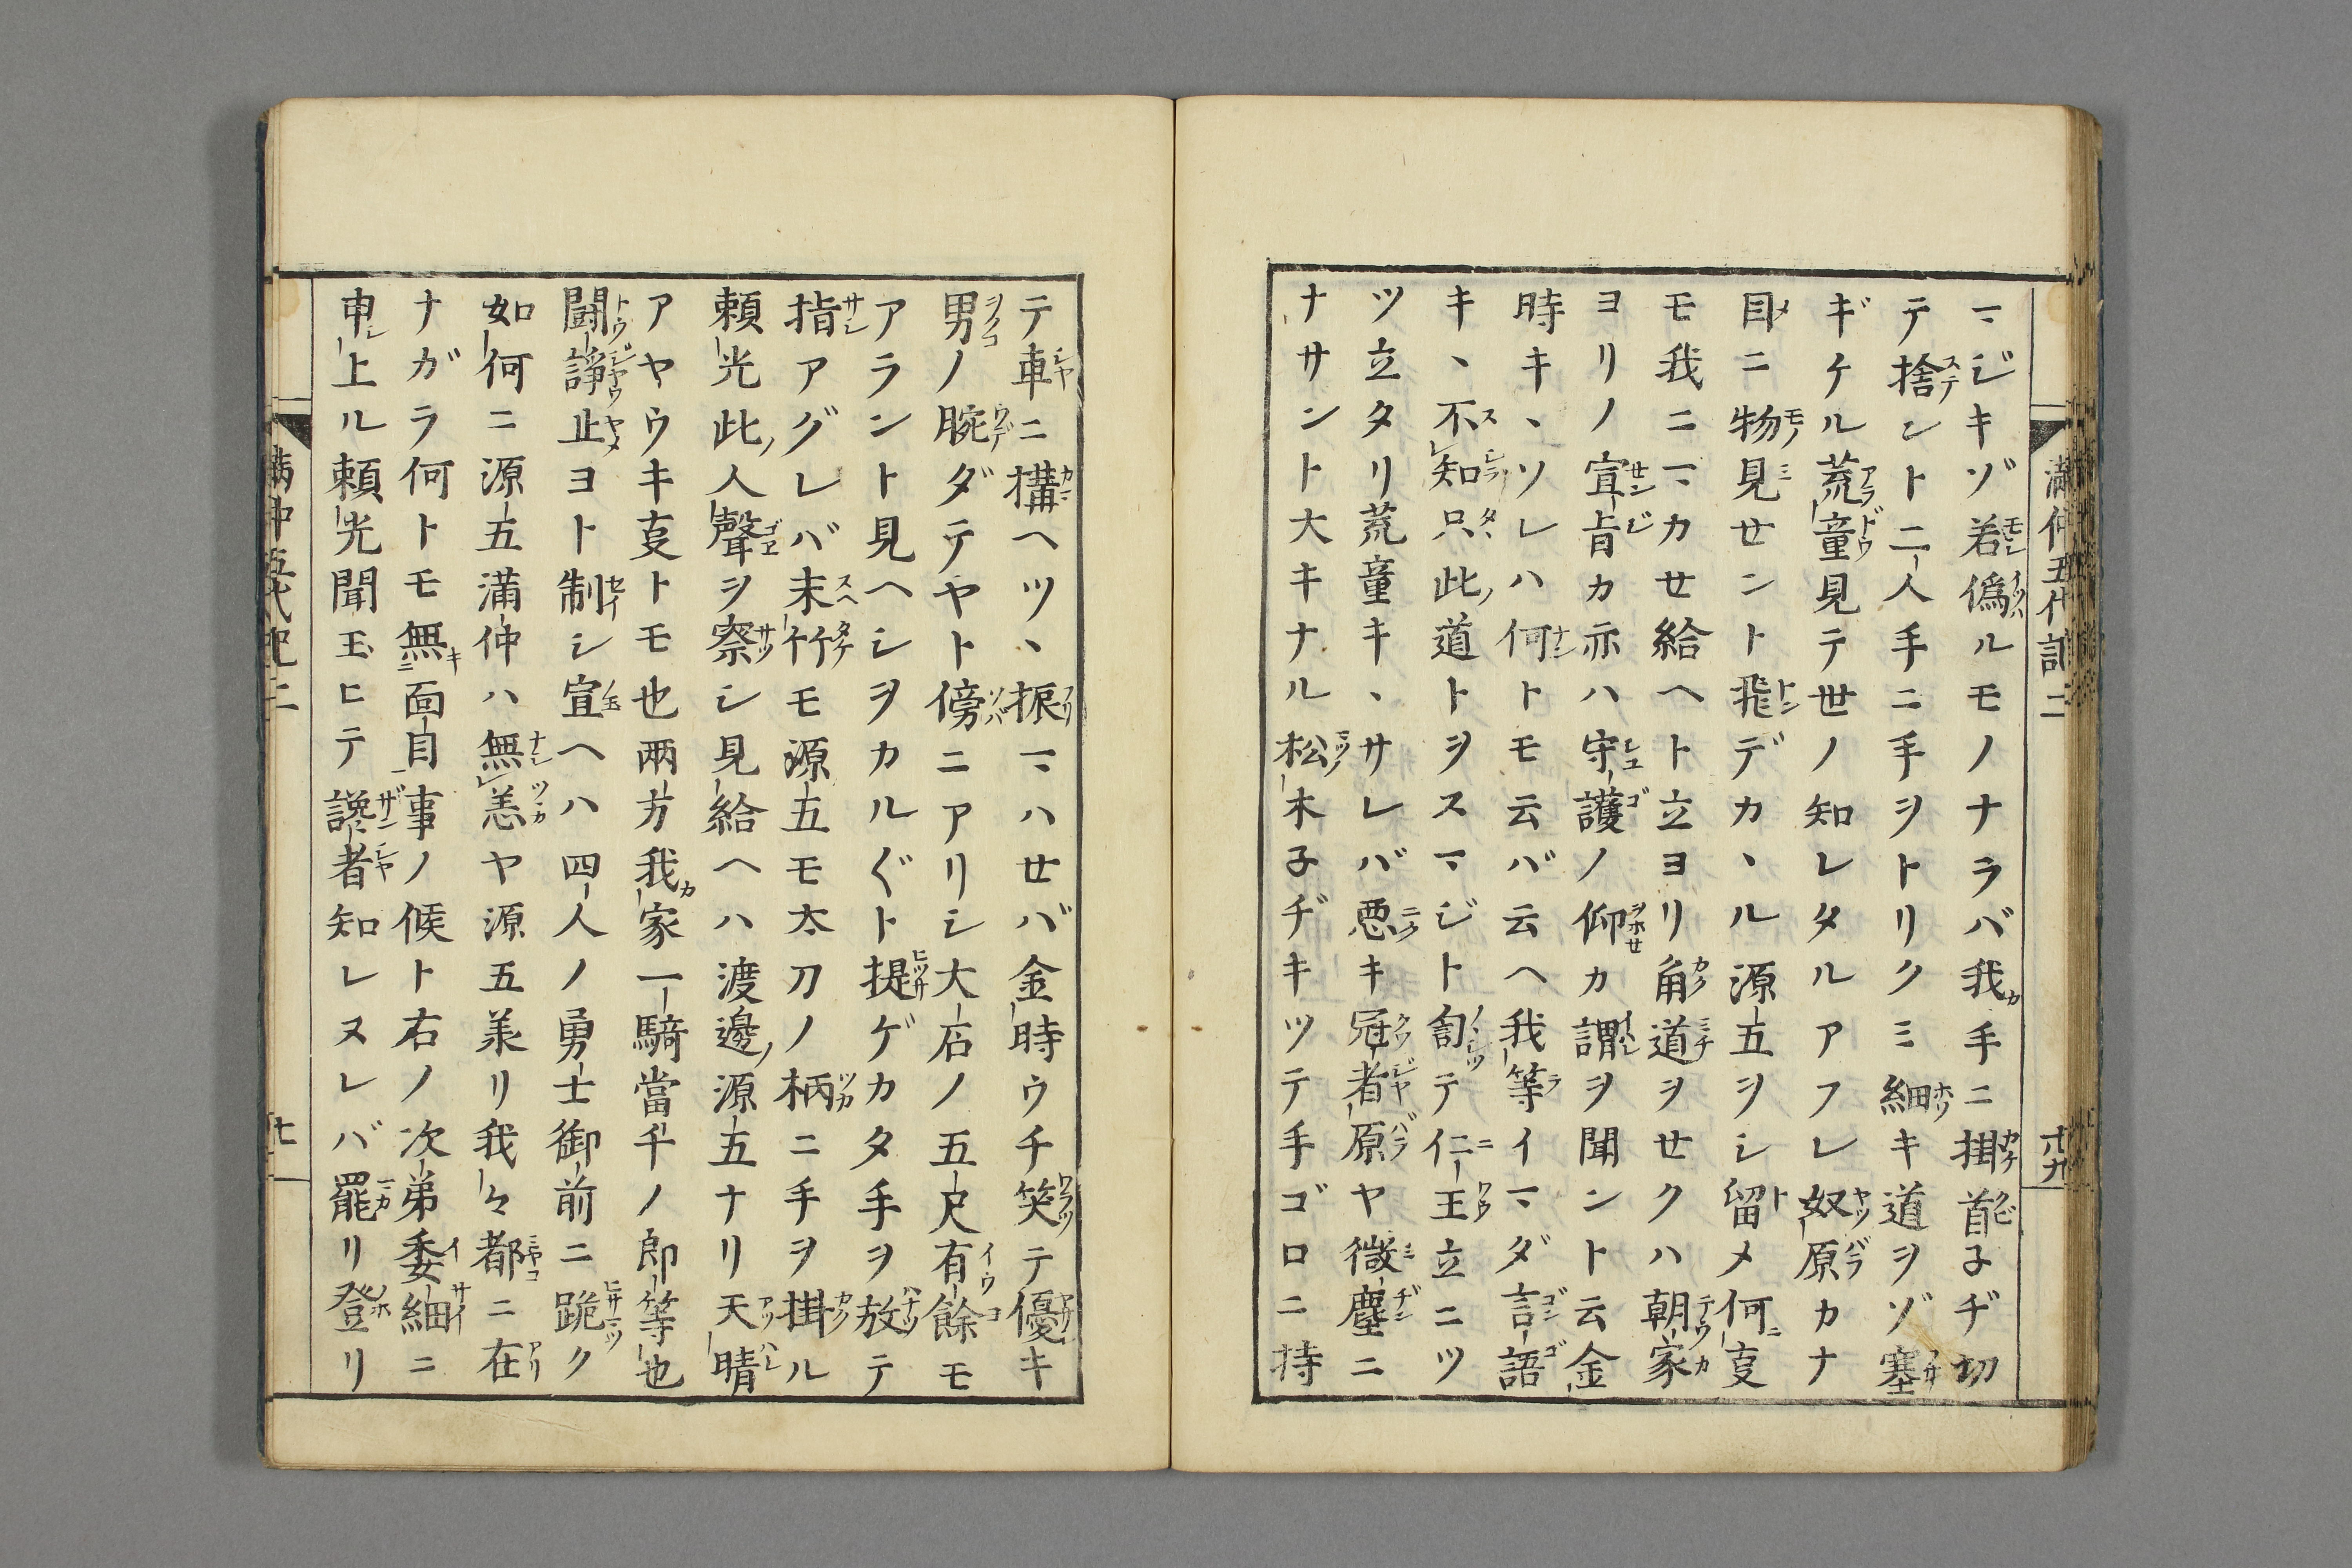 マジキゾ若偽ルモノナラバ我カ手ニ掛首子ヂ切
テ捨ント二人手ニ手ヲトリクミ細キ道ヲゾ塞
ギケル荒童見テ世ノ知レタルアフレ奴原カナ
目ニ物見せント飛デカヽル源五ヲシ留メ何㕝
モ我ニマカせ給ヘト立ヨリ角道ヲせクハ朝家
ヨリノ宣旨カ亦ハ守護ノ仰カ謂ヲ聞ント云金
時キヽソレハ何トモ云バ云ヘ我等イマダ言語
キヽ不知只此道トヲスマジト訇テ仁王立ニツ
ツ立タリ荒童キヽサレバ悪キ冠者原ヤ微塵ニ
ナサント大キナル松木子ヂキツテ手ゴロニ持
満仲五代記二
十九
テ車ニ構ヘツヽ振マハせバ金時ウチ笑テ優キ
男ノ腕ダテヤト傍ニアリシ大石ノ五尺有餘モ
アラント見ヘシヲカルぐト提ゲカタ手ヲ放テ
指アグレバ末竹モ源五モ太刀ノ柄ニ手ヲ掛ル
頼光此人聲ヲ察シ見給ヘハ渡邊源五ナリ天晴
アヤウキ㕝トモ也兩方我家一騎當千ノ郎等也
闘諍止ヨト制シ宣ヘハ四人ノ勇士御前ニ跪ク
如何ニ源五満仲ハ無恙ヤ源五羕リ我々都ニ在
ナガラ何トモ無面目事ノ候ト右ノ次弟委細ニ
申上ル頼光聞玉ヒテ讒者知レヌレバ罷リ登リ
満仲五代記二